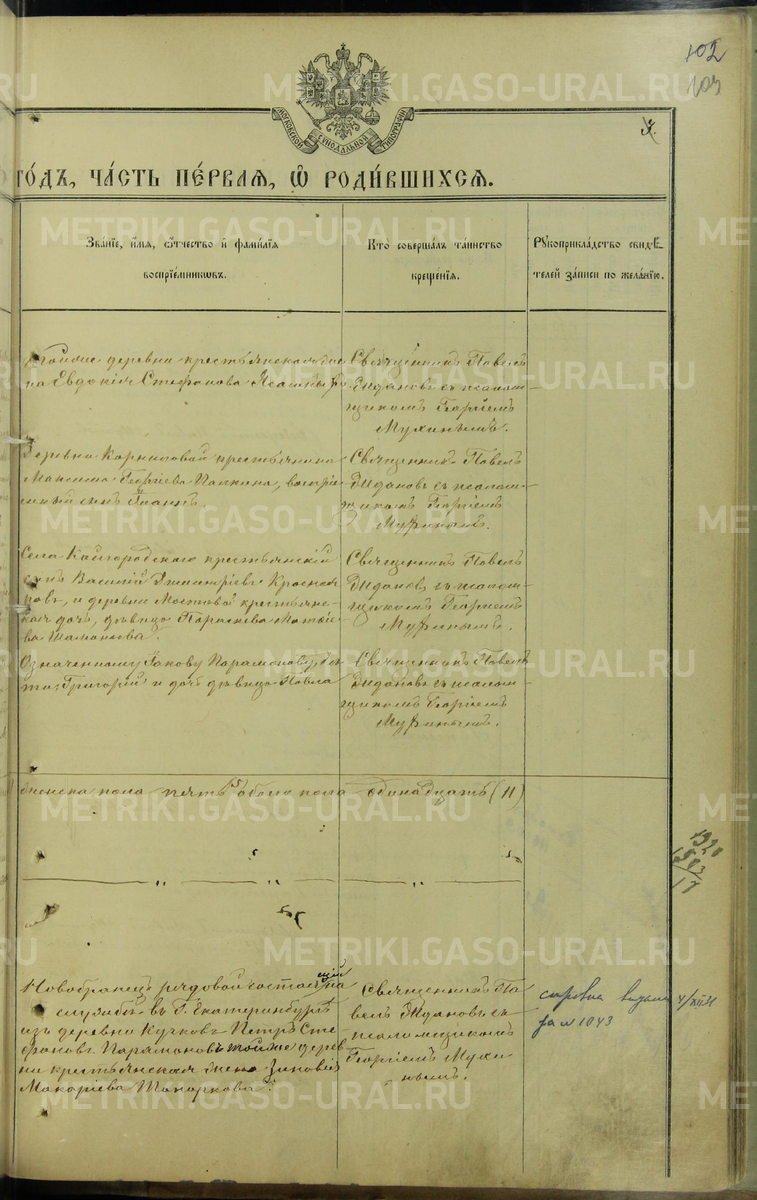 102
103
МОСКОВСКОЙ СѴНОДАЛЬНОЙ ТИПОГРАФІИ
3.
ГОДЪ, ЧАСТЬ ПЕРВАЯ, Ѡ РОДИВШИХСЯ.
Званіе, имя, отчество и фамилія
воспріемниковъ.
Кто совершалъ таинство
крещенія.
Рукоприкладство свидѣ-
телей записи по желанію.
Тойже деревни крестьянская же-
на Евдокія Стефанова
Священникъ Павелъ
Ждановъ съ псалом-
щикомъ Георгіемъ
Мухинымъ.
Деревни Корниловой крестьянина
Максима Георгіева Папкина, воспріе-
сынъ Іоаннъ.
Священникъ Павелъ
Ждановъ съ псалом-
щикомъ Георгіемъ
Мухинымъ.
Села Кайгородскаго крестьянскій
сынъ Василій Димитріевъ
и деревни Мостовой крестьянс-
кая дочь, дѣвица Параскева Матвѣе-
ва
Священникъ Павелъ
Ждановъ съ псалом-
щикомъ Георгіемъ
Мухинымъ.
Означенному Іакову Парамонову дѣ-
ти: Григорій и дочь дѣвица Павла
Священникъ Павелъ
Ждановъ съ псалом-
щикомъ Георгіемъ
Мухинымъ.
женска пола пять 5 обоего пола одинадцать (11)
Новобранецъ рядовой состоящій на
службѣ въ Г. Екатеринбургѣ
изъ деревни Кучковъ Петръ Сте-
фановъ Парамоновъ тойже дерев-
ни крестьянская жена Зиновія
Макаріева
Священникъ Па-
велъ Ждановъ съ
псаломщикомъ
Георгіемъ Мухи-
нымъ.
справка выдана
за № 1043
1920
1903
17
METRIKI.GASO-URAL.RU